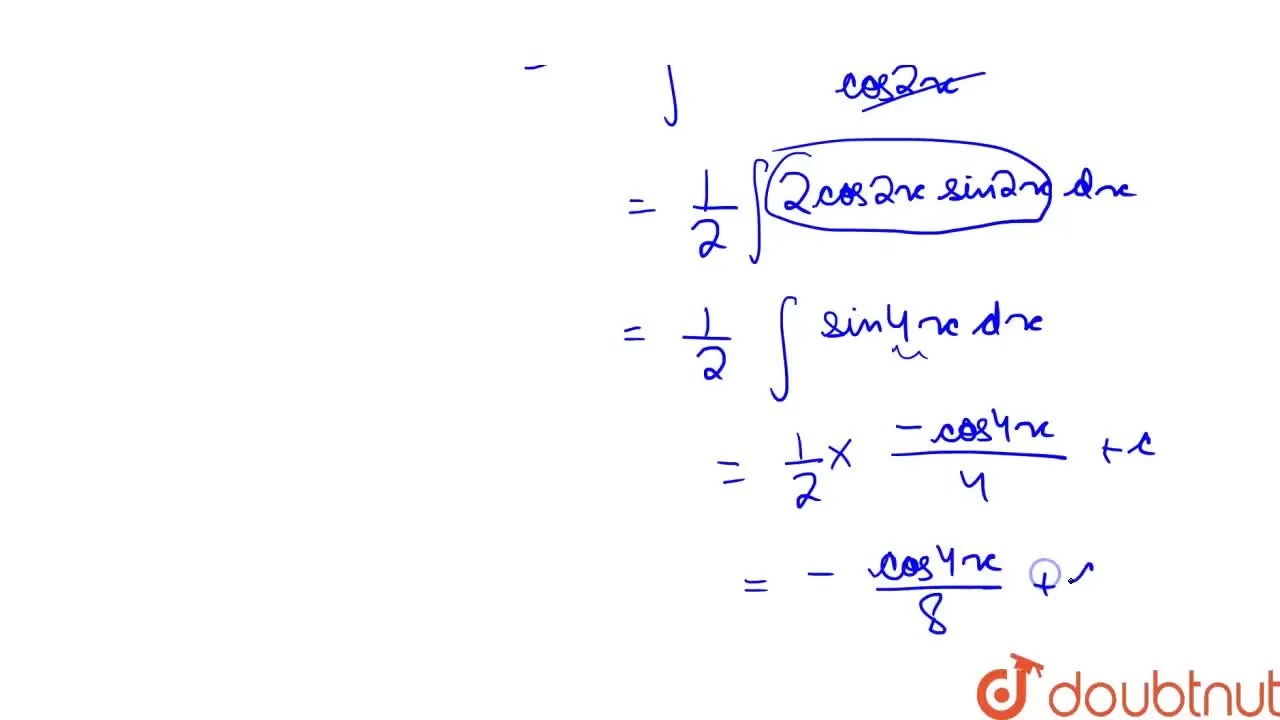 - ∫ cos2x
= 1/2 ∫ 2cos2x sin2x dx
= 1/2 ∫ sin4x dx
= 1/2 × -cos4x/4 + c
= - cos4x/8 +
doubtnut